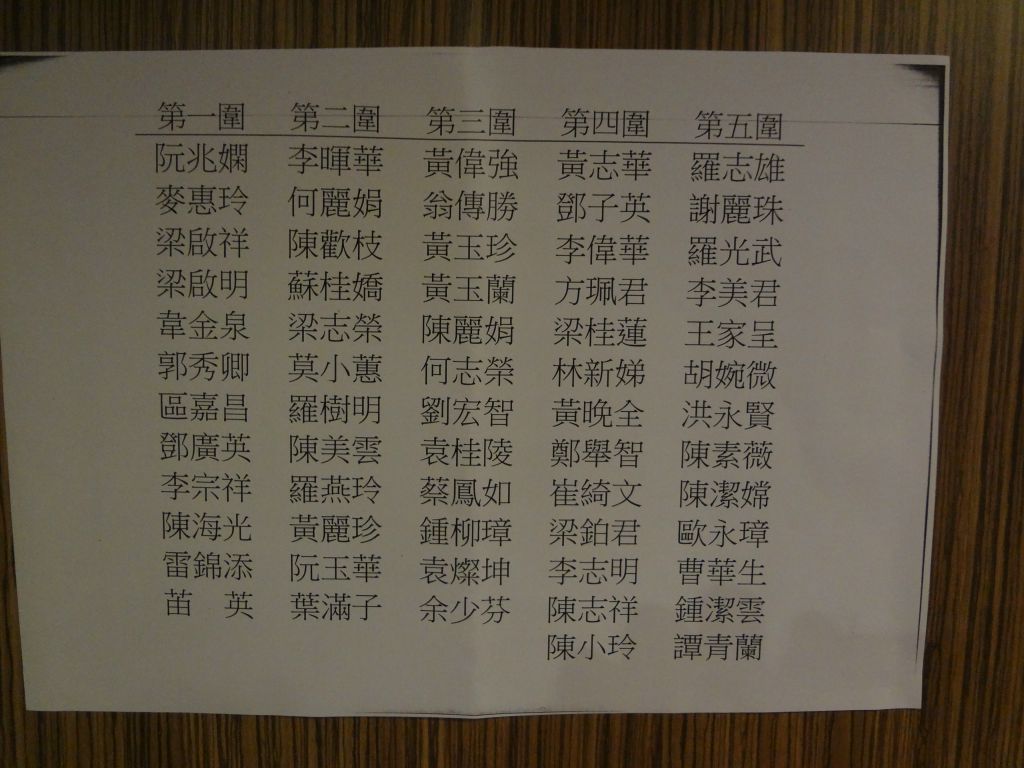 第一圍 第二圍 第三圍 第四圍 第五圍
阮兆嫻 李暉華 黃偉強 黃志華 羅志雄
麥惠玲 何麗娟 翁傳勝 鄧子英 謝麗珠
梁啟祥 陳歡枝 黃玉珍 李偉華 羅光武
梁啟明 蘇桂嬌 黃玉蘭 方珮君 李美君
韋金泉 梁志榮 陳麗娟 梁桂蓮 王家呈
郭秀卿 莫小蕙 何志榮 林新娣 胡婉微
區嘉昌 羅樹明 劉宏智 黃晚全 洪永賢
鄧廣英 陳美雲 袁桂陵 鄭舉智 陳素薇
李宗祥 羅燕玲 蔡鳳如 崔綺文 陳潔嫦
陳海光 黃麗珍 鍾柳璋 梁鉑君 歐永璋
雷錦添 阮玉華 袁燦坤 李志明 曹華生
苗 英 葉滿子 余少芬 陳志祥 鍾潔雲
陳小玲 譚青蘭